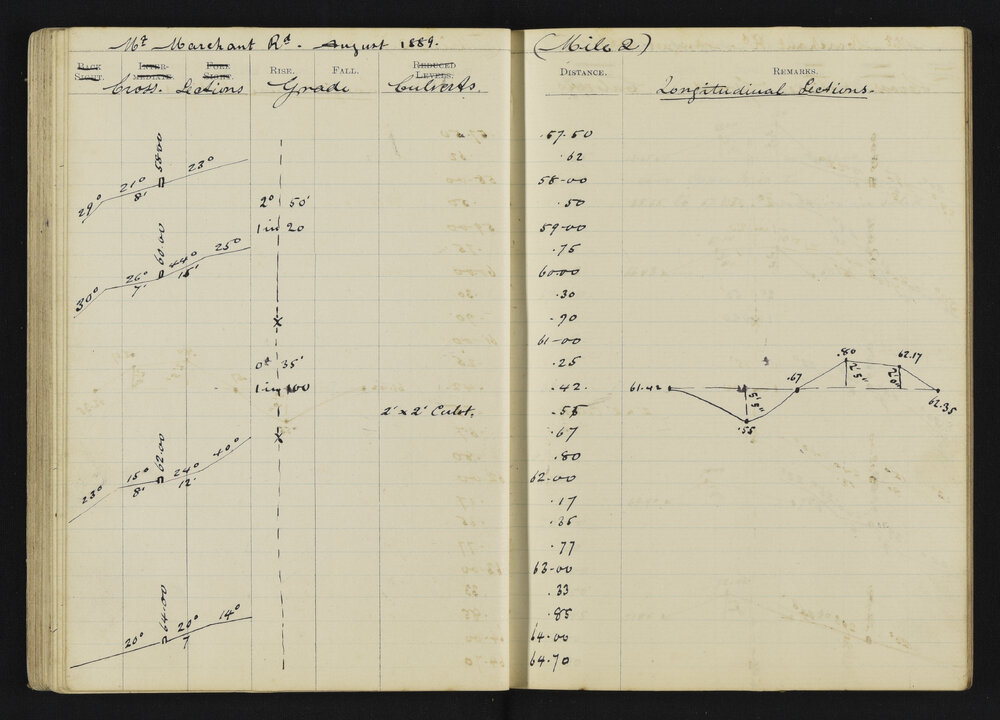 Mt Marchant Rd. August 1889.
BACK SIGHT. INTER-MEDIATE. FORE SIGHT. RISE. FALL. REDUCED LEVELS.
Cross. Sections Grade Culverts.
58.00
29° 21° 23°
8'
2° 50'
1 in 20
60.00
30° 26° 44° 25°
7' 15'
x
0° 35'
1 in 100
2' x 2' Culvt.
x
62.00
23° 15° 24° 40°
8' 12'
64.00
20° 20° 14°
7
(Mile 2)
DISTANCE. REMARKS.
Longitudinal Sections.
.57.50
.62
58-00
.50
59-00
.75
60.00
.30
.90
61-00
.25
.42.
.55
.67
.80
62-00
.17
.35
.77
63-00
.33
.85
64.00
64.70
.80 62.17
61.42 .67 2'5" 2'0"
5'9" 62.35
.55